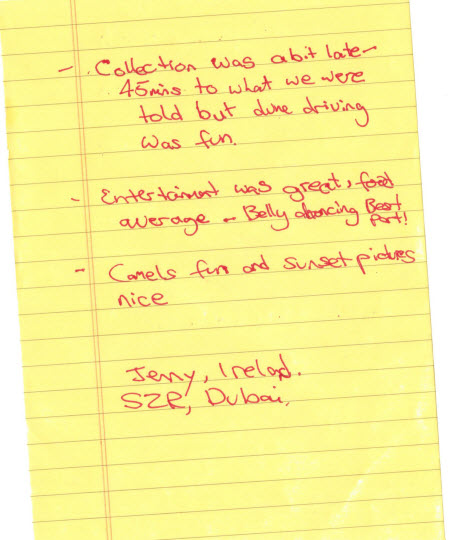 - Collection was a bit late -
45mins to what we were
told but dune driving
was fun.
- Entertaiment was great, food
average - Belly dancing Best
Part!
- Camels fun and sunset pictures
nice
Jenny, Ireland.
SZR, Dubai.